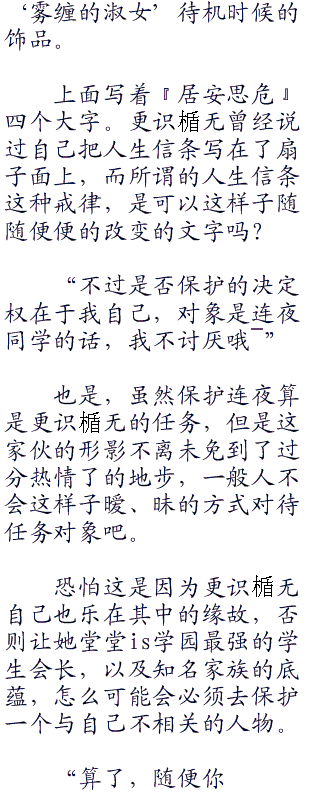 ‘雾缠的淑女’待机时候的
饰品。
上面写着『居安思危』
四个大字。更识楯无曾经说
过自己把人生信条写在了扇
子面上，而所谓的人生信条
这种戒律，是可以这样子随
随便便的改变的文字吗？
“不过是否保护的决定
权在于我自己，对象是连夜
同学的话，我不讨厌哦~”
也是，虽然保护连夜算
是更识楯无的任务，但是这
家伙的形影不离未免到了过
分热情了的地步，一般人不
会这样子暧、昧的方式对待
任务对象吧。
恐怕这是因为更识楯无
自己也乐在其中的缘故，否
则让她堂堂is学园最强的学
生会长，以及知名家族的底
蕴，怎么可能会必须去保护
一个与自己不相关的人物。
“算了，随便你